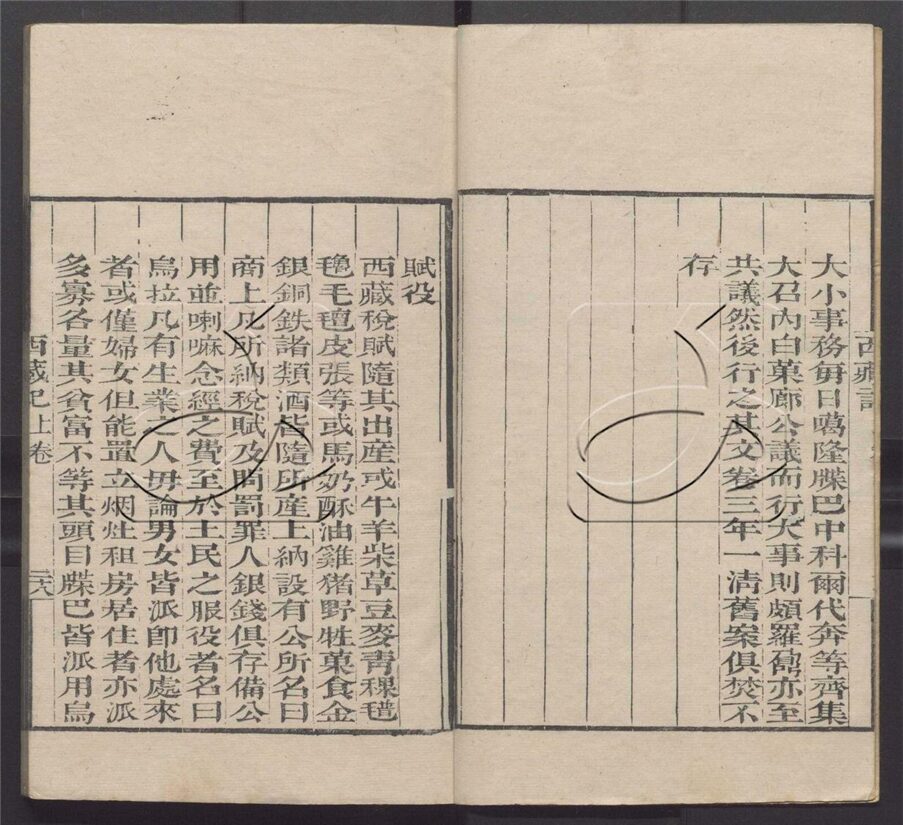 大小事務毎日噶隆牒巴中科爾代奔等齊集
大召內白菓廊公議而行大事則頗羅鼐亦至
共議然後行之其文卷三年一清舊案俱焚不
存
賦役
西藏稅賦隨其出産或牛羊柴草豆麥青稞氆
氇毛毺皮張等或馬奶酥油雞猪野牲菓食金
銀銅鉄諸類酒皆隨所産上納設有公所名曰
商上凡所納稅賦及問罰罪人銀錢俱存備公
用並喇嘛念經之費至於土民之服役者名曰
烏拉凡有生業之人毋論男女皆派卽他處來
者或僅婦女但能置立烟灶租房居住者亦派
多寡各量其貧富不等其頭目牒巴皆派用烏
西藏記上卷
二六